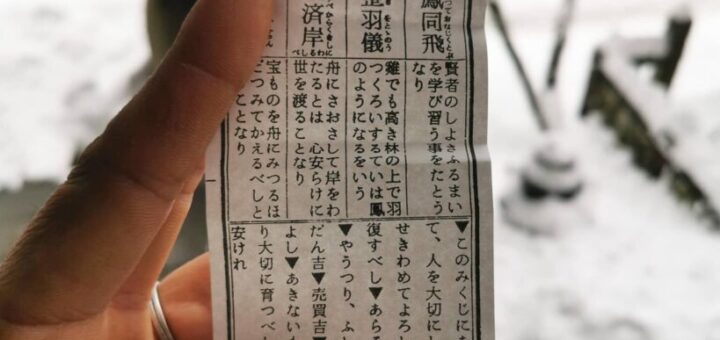 鳳同飛
つておなじくとぶ
羽儀
をとゝのう
済岸
賢者のしよさふるまい
を学び習う事をたとう
なり
雞でも高き林の上で羽
つくろいするていは鳳
のようになるをいう
舟にさおさして岸をわ
たるとは 心安らけに
世を渡ることなり
宝ものを舟にみつるほ
どつみてかえるべしと
ことなり
▼このみくじに
て、人を大切にし
せきわめてよろし
復すべし▼あらそ
▼やうつり、ふし
だん吉▼売買吉▼
よし▼あきない
り大切に育つべし
安けれ